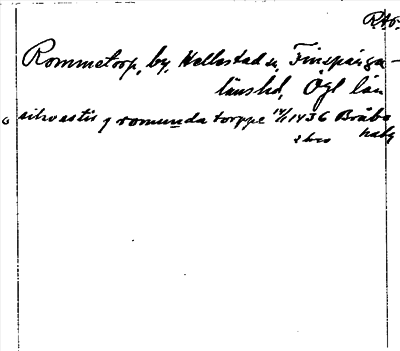 RAp.
Rommetorp, by, Hellestad sn, Finspånga-
länshd, Ögl län
silvastis j romunda torppe 14/1 1436 Bråbo
häbg